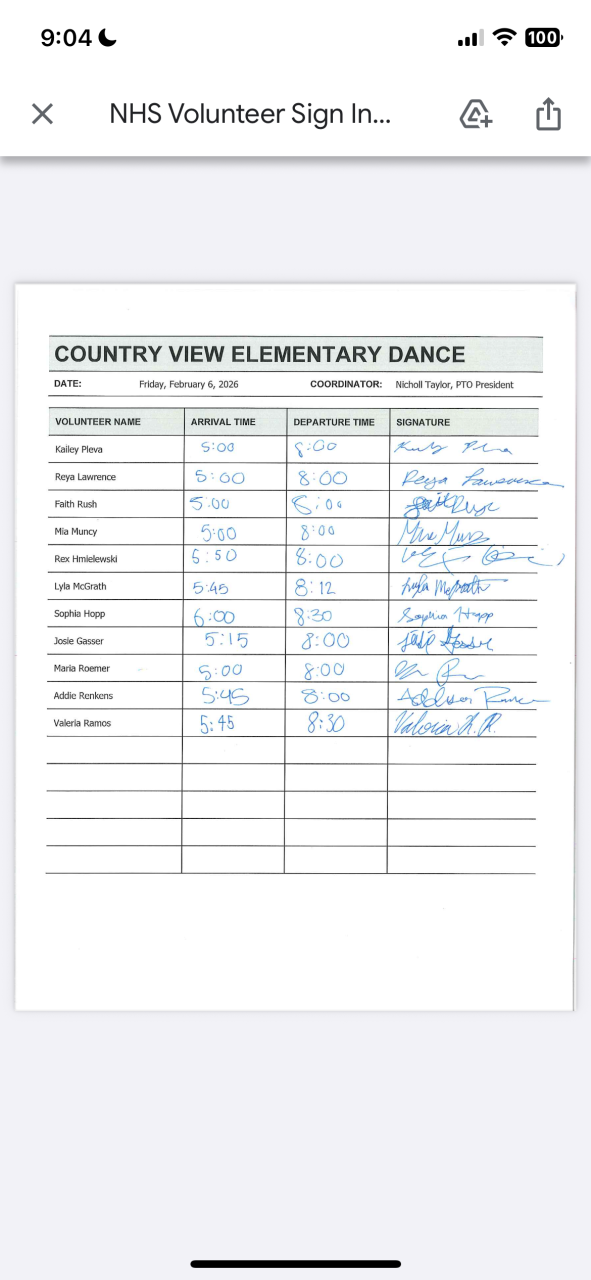 9:04
100
NHS Volunteer Sign In...
COUNTRY VIEW ELEMENTARY DANCE
DATE: Friday, February 6, 2026 COORDINATOR: Nicholl Taylor, PTO President
VOLUNTEER NAME ARRIVAL TIME DEPARTURE TIME SIGNATURE
Kailey Pleva 5:00 8:00
Reya Lawrence 5:00 8:00 Reya Lawrence
Faith Rush 5:00 8:00 Faith Rush
Mia Muncy 5:00 8:00
Rex Hmielewski 5:50 8:00
Lyla McGrath 5:45 8:12 Lyla McGrath
Sophia Hopp 6:00 8:30 Sophia Hopp
Josie Gasser 5:15 8:00 Josie Gasser
Maria Roemer 5:00 8:00
Addie Renkens 5:45 8:00
Valeria Ramos 5:45 8:30 Valeria R.R.